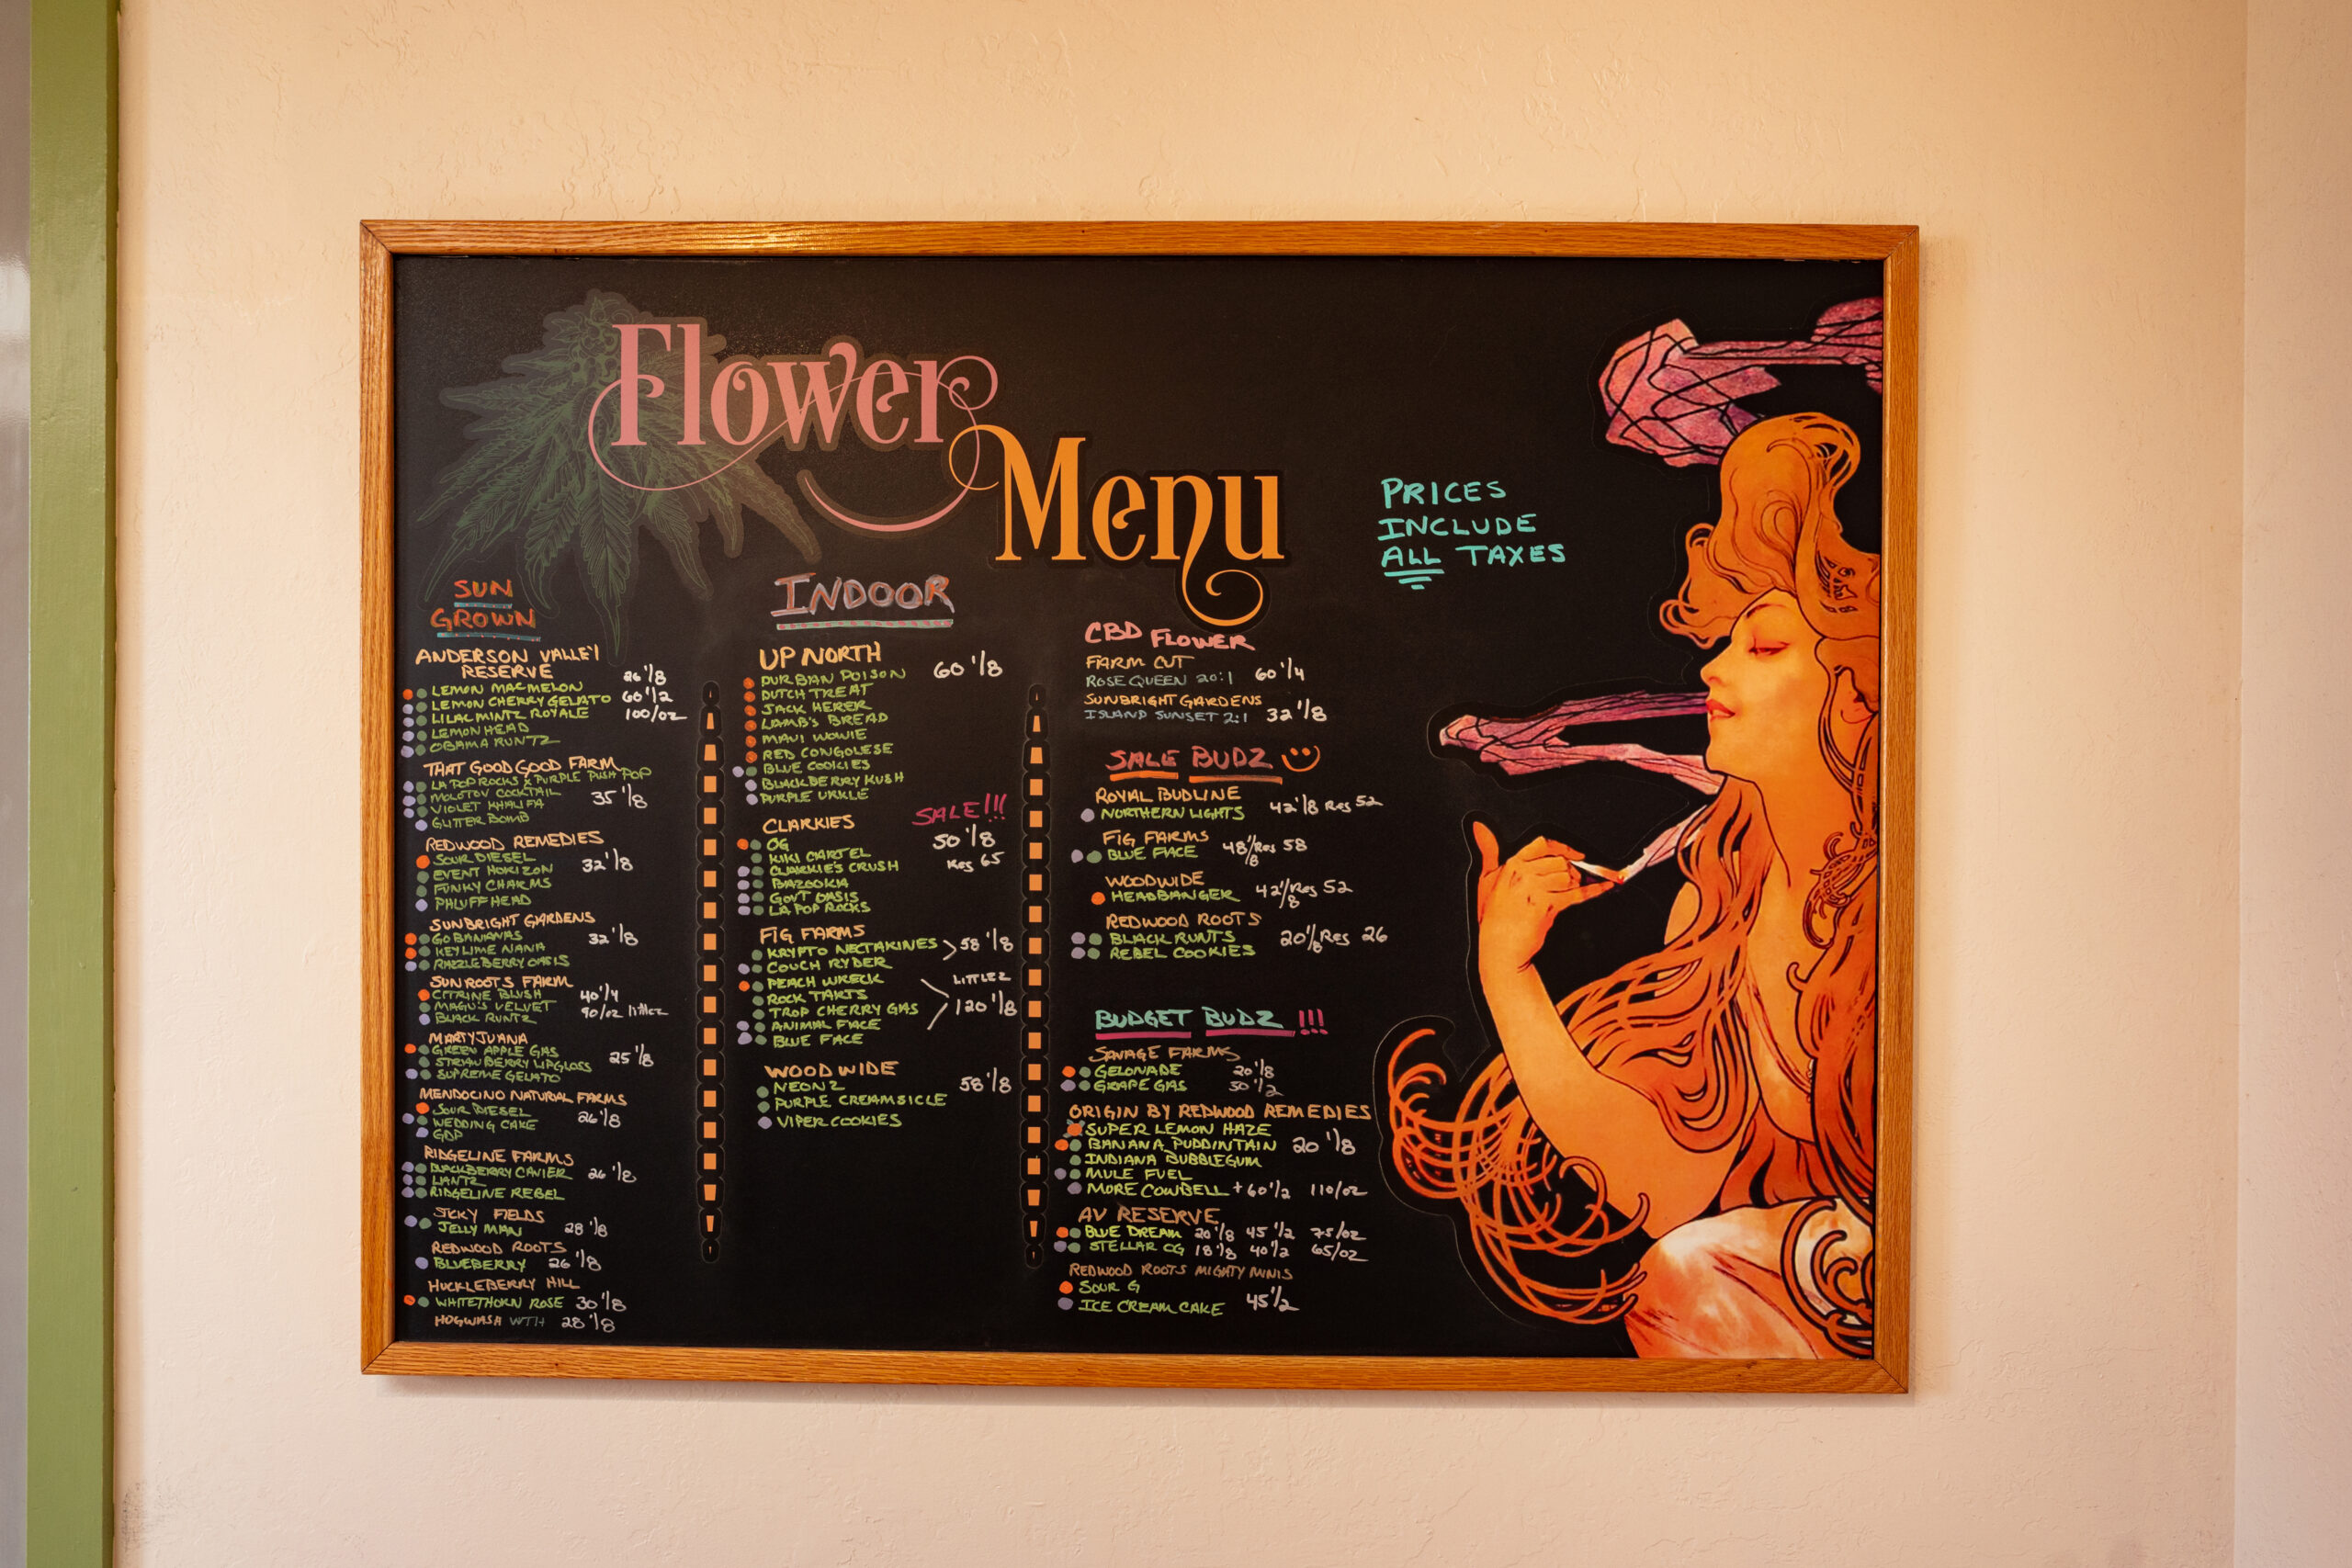 Flower
Menu
PRICES
INCLUDE
ALL TAXES
SUN
GROWN
ANDERSON VALLEY
RESERVE 26 1/8
LEMON MAC MELON
LEMON CHERRY GELATO 60 1/2
LILAC MINTZ ROYALE 100/OZ
LEMON HEAD
OBAMA RUNTZ
THAT GOOD GOOD FARM
LA POP ROCKS x PURPLE PUSH POP
MOLOTOV COCKTAIL 35 1/8
VIOLET KHALIFA
GLITTER BOMB
REDWOOD REMEDIES
SOUR DIESEL 32 1/8
EVENT HORIZON
FUNKY CHARMS
PHLUFFHEAD
SUNBRIGHT GARDENS
GO BANANAS 32 1/8
KEYLIME NANA
RAZZLEBERRY OASIS
SUNROOTS FARM
CITRINE BLUSH 40 1/4
MAGU'S VELVET 90/OZ littlez
BLACK RUNTZ
MARTYJUANA
GREEN APPLE GAS 25 1/8
STRAWBERRY LIPGLOSS
SUPREME GELATO
MENDOCINO NATURAL FARMS
SOUR DIESEL 26 1/8
WEDDING CAKE
GDP
RIDGELINE FARMS
BLACKBERRY CAVIER 26 1/8
LANTZ
RIDGELINE REBEL
STICKY FIELDS
JELLY MAN 28 1/8
REDWOOD ROOTS
BLUEBERRY 26 1/8
HUCKLEBERRY HILL
WHITETHORN ROSE 30 1/8
HOGWASH WTH 28 1/8
INDOOR
UP NORTH 60 1/8
DURBAN POISON
DUTCH TREAT
JACK HERER
LAMB'S BREAD
MAUI WOWIE
RED CONGOLESE
BLUE COOKIES
BLACKBERRY KUSH
PURPLE URKLE
SALE!!!
CLARKIES 50 1/8
OG Res 65
KIKI CARTEL
CLARKIE'S CRUSH
BAZOOKIA
GOVT OASIS
LA POP ROCKS
FIG FARMS
KRYPTO NECTARINES 58 1/8
COUCH RYDER
PEACH WRECK LITTLEZ
ROCK TARTS
TROP CHERRY GAS 120 1/8
ANIMAL FACE
BLUE FACE
WOODWIDE
NEONZ 58 1/8
PURPLE CREAMSICLE
VIPER COOKIES
CBD FLOWER
FARM CUT
ROSE QUEEN 20:1 60 1/4
SUNBRIGHT GARDENS
ISLAND SUNSET 2:1 32 1/8
SALE BUDZ
ROYAL BUDLINE
NORTHERN LIGHTS 42 1/8 Res 52
FIG FARMS
BLUE FACE 48 1/8 Res 58
WOODWIDE
HEADBANGER 42 1/8 Res 52
REDWOOD ROOTS
BLACK RUNTS 20 1/8 Res 26
REBEL COOKIES
BUDGET BUDZ !!!
SAVAGE FARMS
GELONADE 20 1/8
GRAPE GAS 50 1/2
ORIGIN BY REDWOOD REMEDIES
SUPER LEMON HAZE
BANANA PUDDINTAIN 20 1/8
INDIANA BUBBLEGUM
MULE FUEL
MORE COWBELL + 60 1/2 110/OZ
AV RESERVE
BLUE DREAM 20 1/8 45 1/2 75/OZ
STELLAR OG 18 1/8 40 1/2 65/OZ
REDWOOD ROOTS MIGHTY MINIS
SOUR G
ICE CREAM CAKE 45 1/2